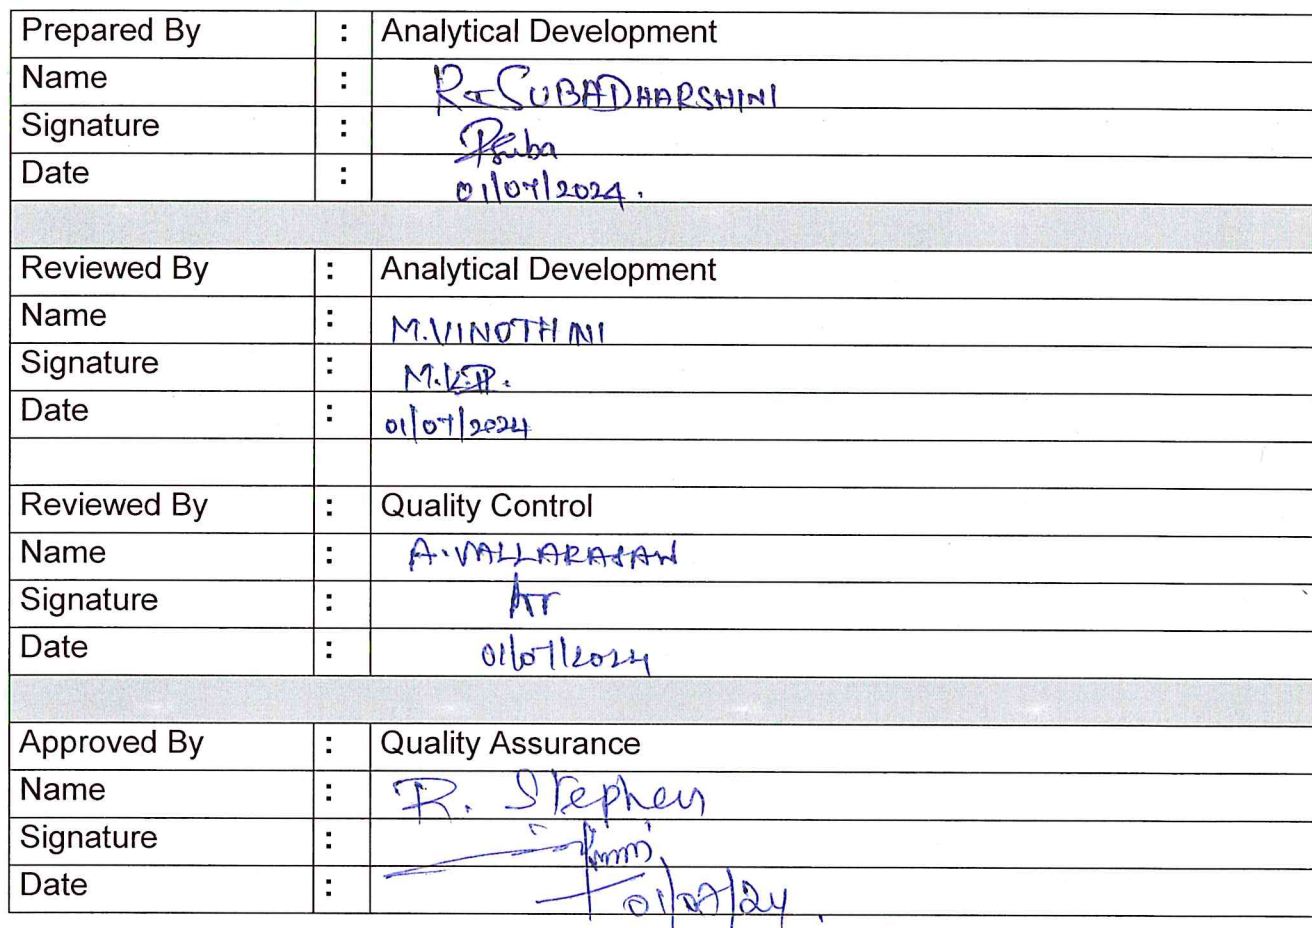 Prepared By : Analytical Development
Name : R. SUBADHARSHINI
Signature : PSuba
Date : 01/07/2024.
Reviewed By : Analytical Development
Name : M.VINOTHINI
Signature :
Date : 01/07/2024
Reviewed By : Quality Control
Name : A.VALLARASAN
Signature :
Date : 01/07/2024
Approved By : Quality Assurance
Name : R. Stephen
Signature :
Date : 01/07/24.